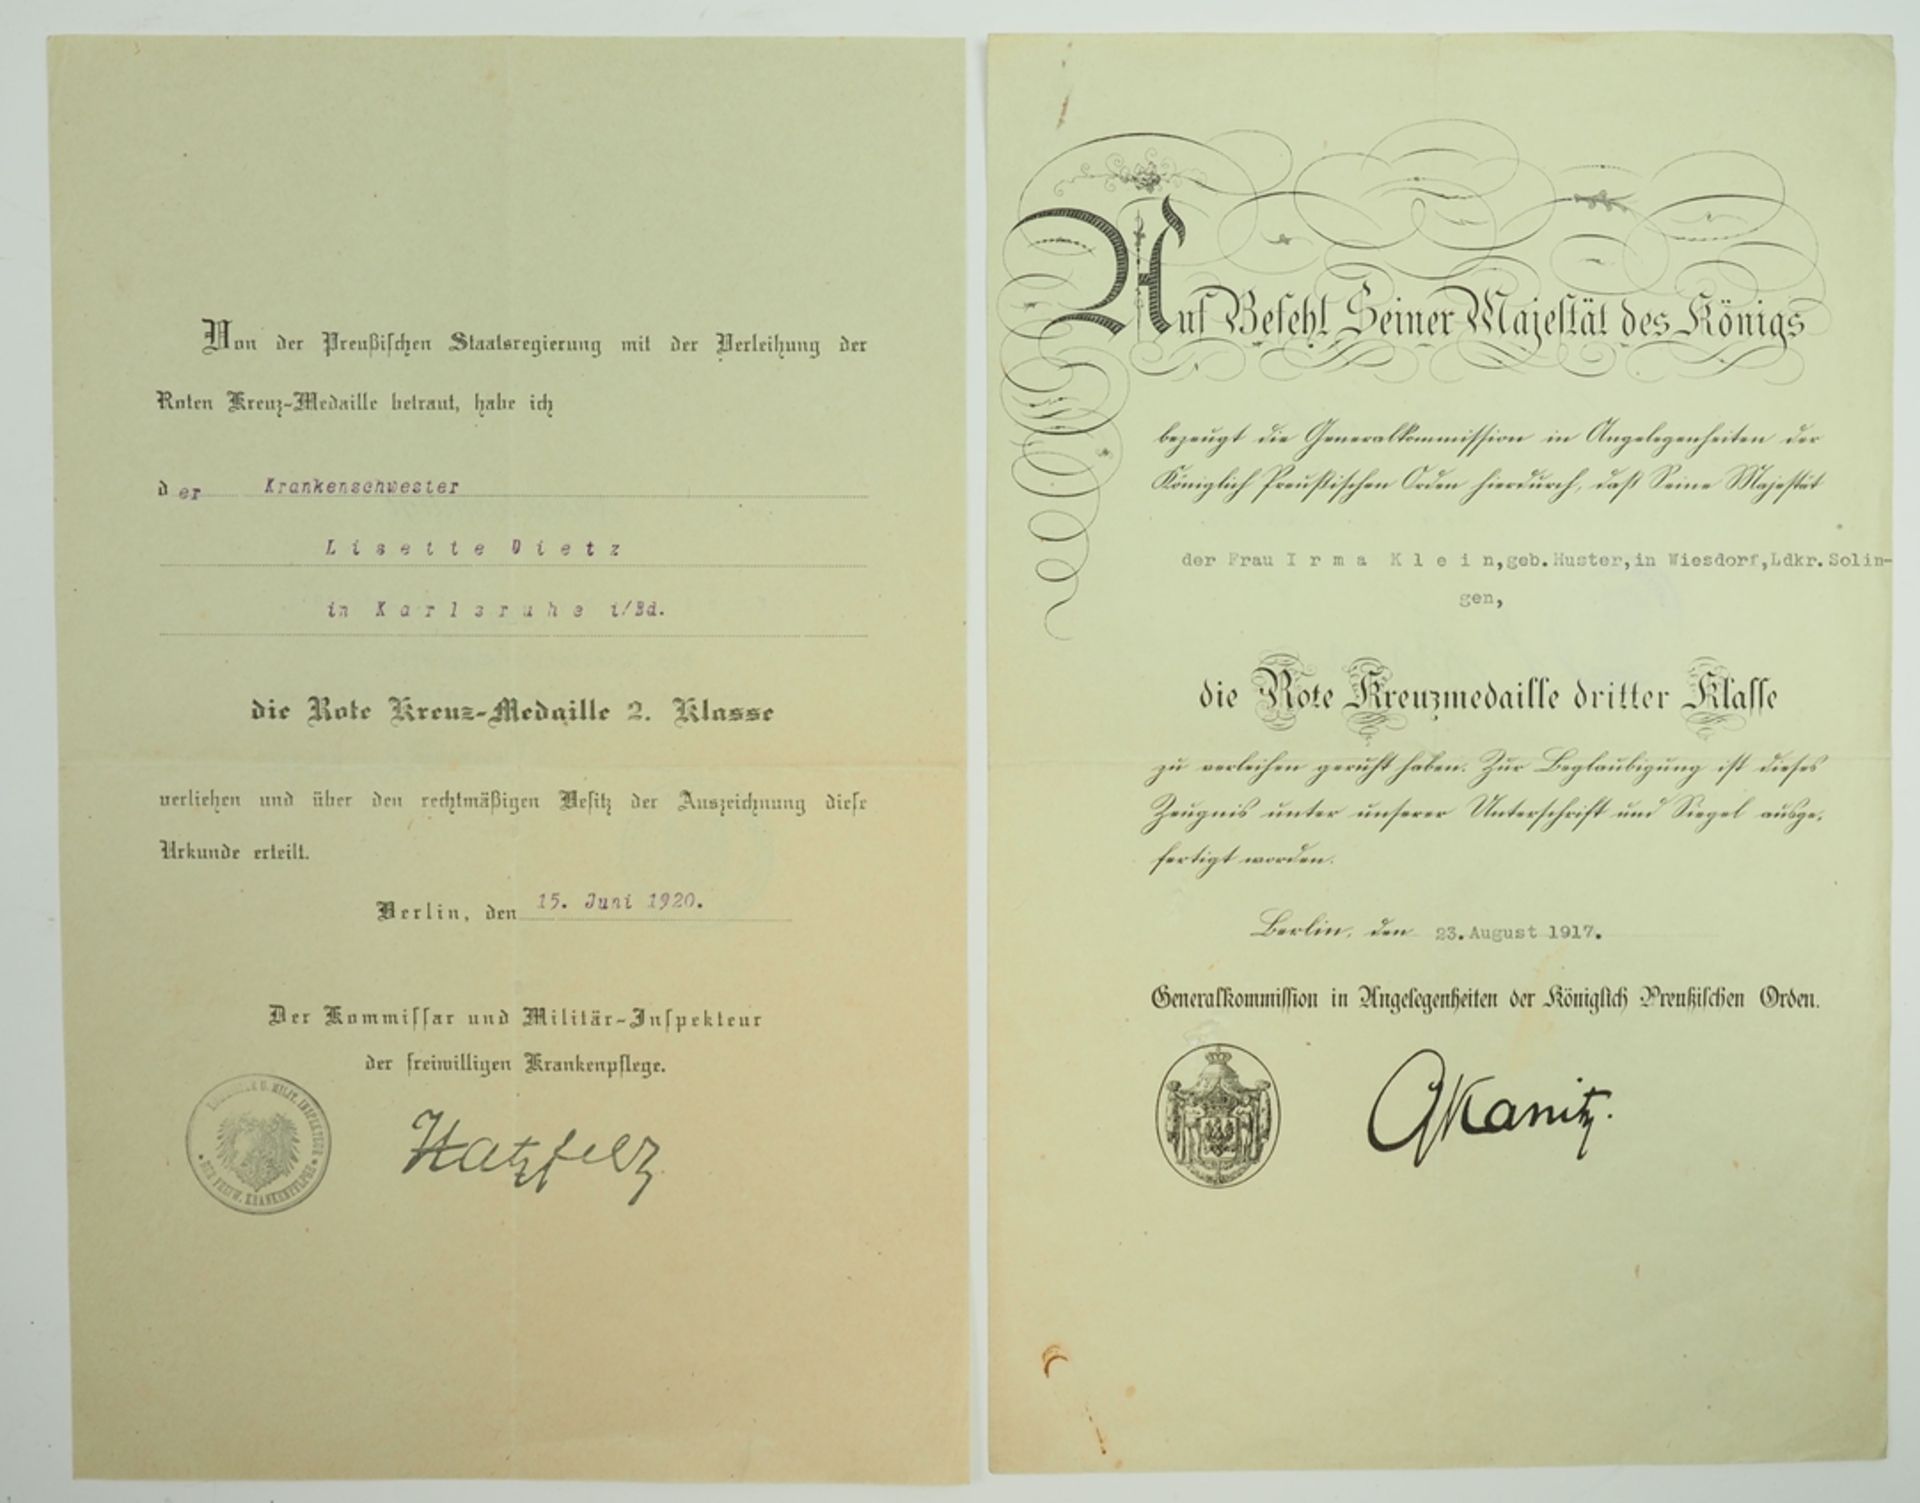 Von der Preußischen Staatsregierung mit der Verleihung der
Roten Kreuz-Medaille betraut, habe ich
der Krankenschwester
Lisette Dietz
in Karlsruhe i/Bd.
die Rote Kreuz-Medaille 2. Klasse
verliehen und über den rechtmäßigen Besitz der Auszeichnung diese
Urkunde erteilt.
Berlin, den 15. Juni 1920.
Der Kommissar und Militär-Inspekteur
der freiwilligen Krankenpflege.
U. MILIT. INSPEKTEUR
DER FREIW. KRANKENPFLEGE
Hatzfeld
Auf Befehl Seiner Majestät des Königs
bezeugt die Generalkommission in Angelegenheiten der
Königlich Preußischen Orden hierdurch, daß Seine Majestät
der Frau Irma Klein, geb. Huster, in Wiesdorf, Ldkr. Solin-
gen,
die Rote Kreuzmedaille dritter Klasse
zu verleihen geruht haben. Zur Beglaubigung ist dieses
Zeugnis unter unserer Unterschrift und Siegel ausge-
fertigt worden.
Berlin, den 23. August 1917.
Generalkommission in Angelegenheiten der Königlich Preußischen Orden.
Kanitz.